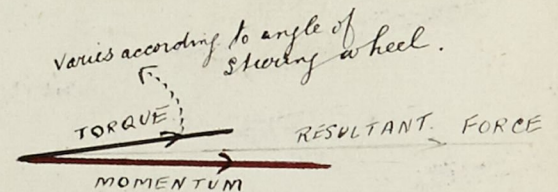 varies according to angle of
stering wheel.
TORQUE
RESULTANT. FORCE
MOMENTUM